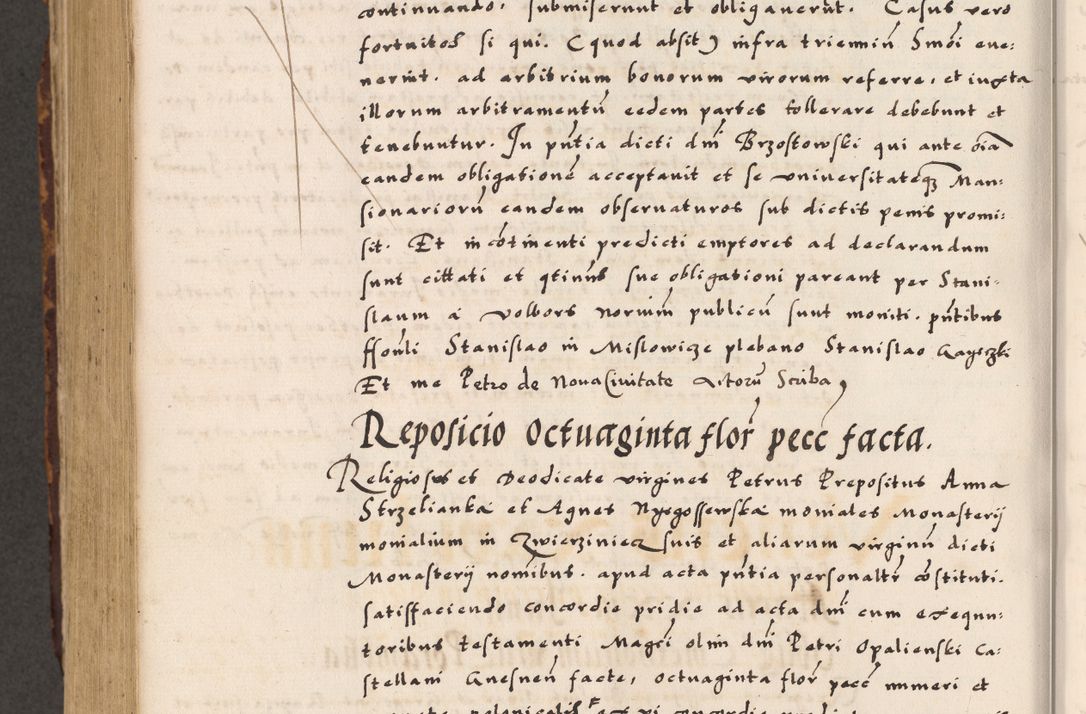 continuando, submiserunt et obligaverūt. Casus vero
fortuitos si qui. (quod absit) infra trienniū Smōi eve:
nerint. ad arbitrium bonorum virorum referre, et iuxta
illorum arbitramentū eedem partes tollerare debebunt et
tenebuntur. In pn̄tia dicti dnī Brzostowski qui ante oīa
eandem obligationē acceptavit et se universitateq3 Man:
sionariorū eandem observaturos sub dictis penis promi:
sit. Et in cōtinenti predicti emptores ad declarandum
sunt cittati et qtinūs sue obligationi pareant per Stani:
slaum a Volbors Noriūm publicū sunt moniti. pn̄tibus
Stanislao in Mislowicze plebano Stanislao
Et me Petro de Nova Civitate Actorū Scriba,
Reposicio Octuaginta flor̄ pecc̄ facta.
Religiosus et Deodicate virgines Petrus Prepositus Anna
Strzelianka et Agnes Nyegossewska moniales Monasterij
monialium in Zwierziniecz suis et aliarum virginū dicti
Monasterij nomībus. apud acta pn̄tia personaltr̄ cōstituti.
satisfaciendo concordie pridie ad acta dnī cum exequu:
toribus testamenti Magcī olim dnī Petri Opalienski Ca:
stellani Gnesneñ facte, Octuaginta flor̄ pecc̄ numeri et